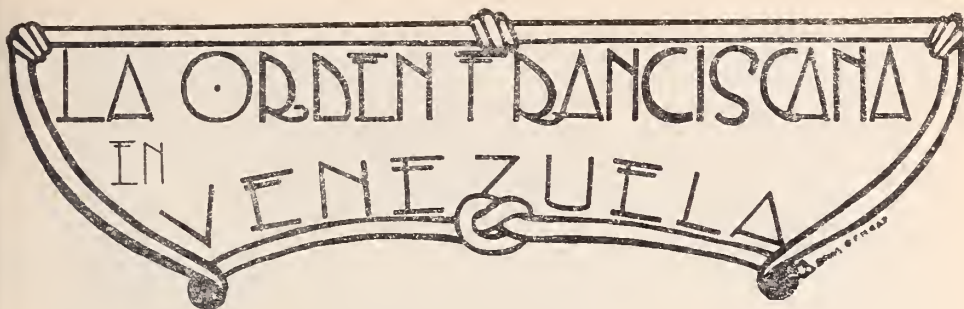 LA ORDEN FRANCISCANA
IN
VENEZUELA